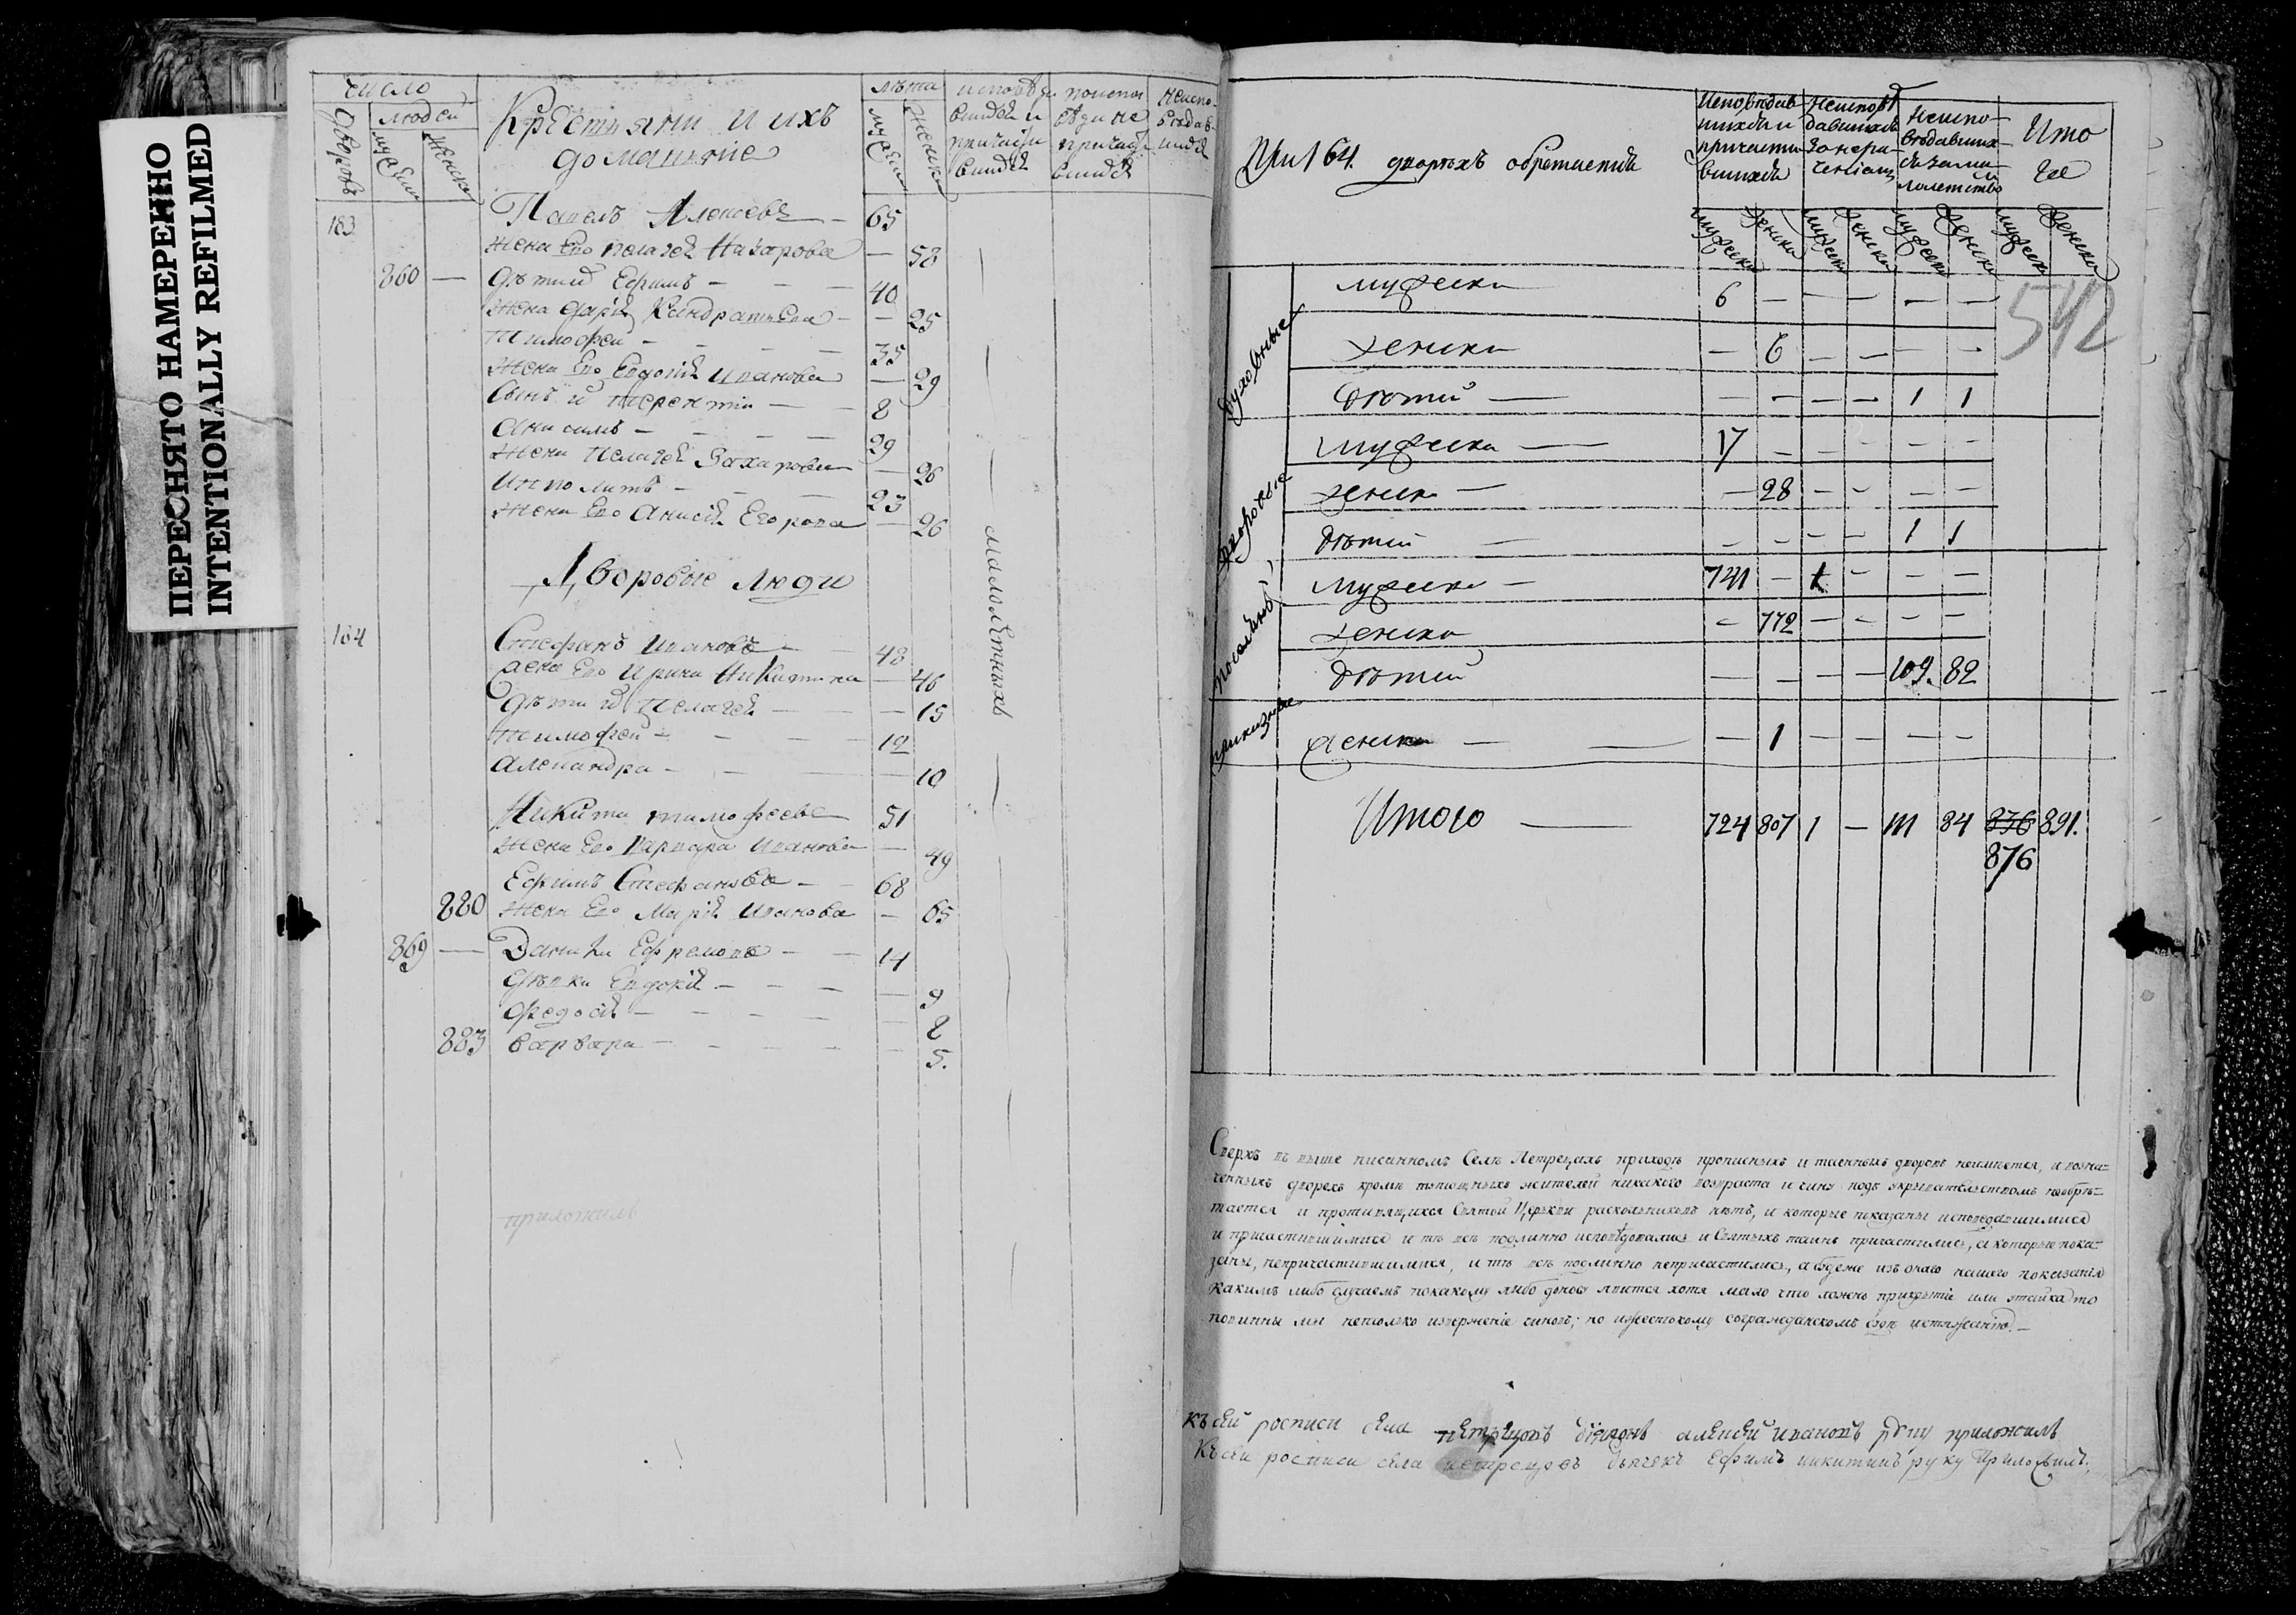 ПЕРЕСНЯТО НАМЕРЕННО
INTENTIONALLY REFILMED
число
людей
дворовъ
мужеска
женска
Крестьяни и ихъ
домашние
лѣта
мужеска
женска
183
Павелъ Алексевъ — 65
жена Его пелагея Назарова — 58
860 — дѣти и Ефимъ — 40
жена дарія Кандратьева — 25
Тимофей — 35
жена Его Евдокія Иванова — 29
сынъ и терентіи — 8
Анисимъ — 29
жена Пелагея Захарова — 26
Ипполитъ — 23
жена Его Анисія Егорова — 26
малолѣтныхъ
Дворовые люди
164
Стефанъ Ивановъ — 48
жена Его Ирина Никитина — 46
дѣти и Пелагея — 15
тимофей — 12
александра — 10
Никита тимофеевъ 51
жена Его Варвара Иванова — 49
Ефимъ Стефановъ — 68
880 жена Его Марія Иванова — 65
869 — Данила Ефремовъ — 14
дѣвки Евдокія — 9
федосія — 8
883 варвара — 5.
приложилъ
При 164. дворѣхъ обретается
Исповѣдав
шихся и
причасти
вшихся
Неисповѣ
давшихся
Неиспо-
вѣдавших-
ся за ма-
лолетство
Ито
го
мужеска женска мужеска женска мужеска женска мужеска женска
542
духовные
мужеска 6 — — — — —
женска — 6 — — — —
дѣтей — — — — — 1 1
дворовые
мужеска — 17 — — — — —
женска — — 28 — — — —
дѣтей — — — — — 1 1
поселяне
мужеска — 741 — 1 — — —
женска — 772 — — — —
дѣтей — — — — 109. 82
приказные
женска — — 1 — — — —
Итого — 724 807 1 — 111 84 836 891.
876
Сверхъ въ выше писанномъ Селѣ Петрецахъ приходѣ прописныхъ и таенныхъ дворовъ неимѣется, и возна-
ченныхъ дворехъ кромѣ тѣхъ жителей никакого возраста и чину подъ укрывательствомъ необрѣ-
тается и противящихся Святой Церькви раскольниковъ нѣтъ, и которые показаны исповедавшимися
и причастившимися и тѣ всѣ подлинно исповѣдовались и Святыхъ таинъ причастились, а которые пока-
заны, непричастившимися, и тѣ всѣ подлинно непричастились, а ежели изъ онаго нашего показанія
какимъ либо случаемъ покакому либо доносу явится хотя мало что ложно прикрытіе или утайка то
повинны мы нетолько изверженіе чиновъ; но ижестокому согражданскомъ судѣ истязанію. —
къ сей росписи села петрецовъ діяконъ алексей ивановъ руку приложилъ
Къ сей росписи села петрецовъ дьячекъ Ефимъ никитинъ руку приложилъ.